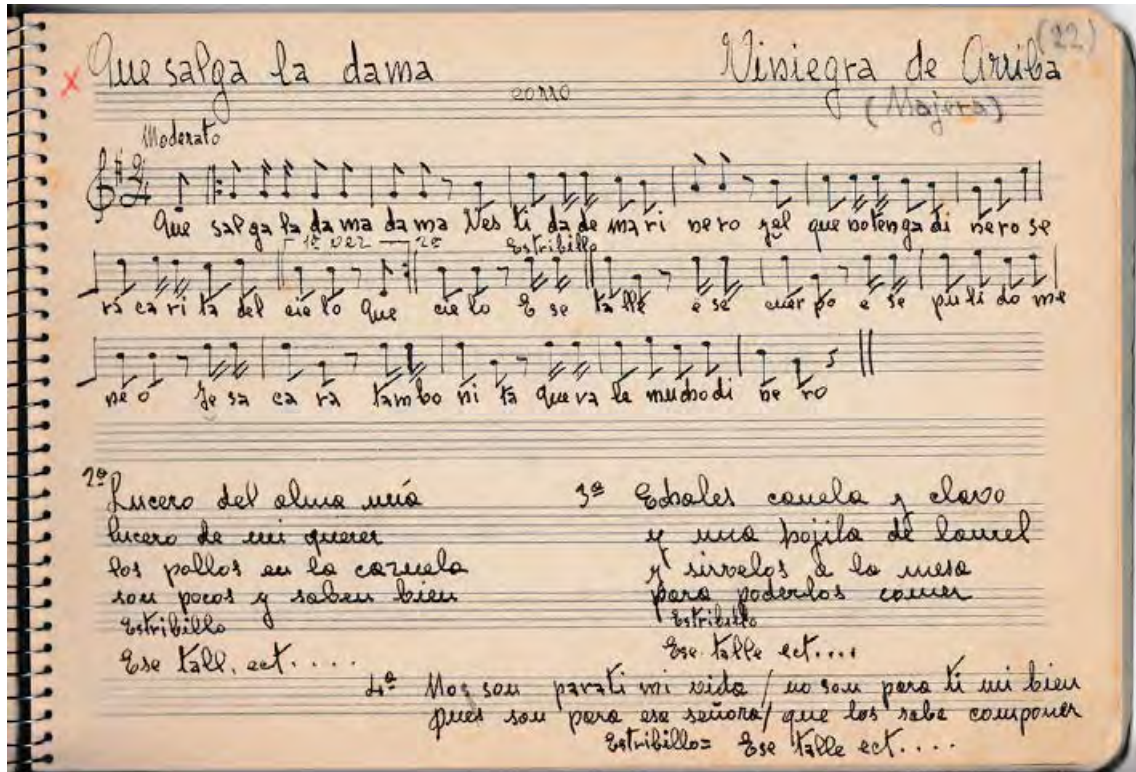 (22)
Que salga la dama
Viniegra de Arriba
corro
(Najera)
Moderato
2/4
Que salga la da ma da ma Ves ti da de ma ri ne ro yel que no tenga di nero se
1ª vez 2ª
Estribillo
rá ca ri ta del cie lo Que cie lo E se ta lle e se cuer po e se pu li do me
ne o Je sa ca ra tam bo ni ta que va le mucho di ne ro
2ª Lucero del alma mía
lucero de mi querer
los pollos en la cazuela
son pocos y saben bien
Estribillo
Ese tall. ect. . . .
3ª Echales canela y clavo
y una hojita de laurel
y sirvelos a la mesa
para poderlos comer
Estribillo
Ese talle ect....
4ª Nos son para ti mi vida / no son para ti mi bien
pues son para esa señora / que los sabe componer
Estribillo= Ese talle ect. . . .